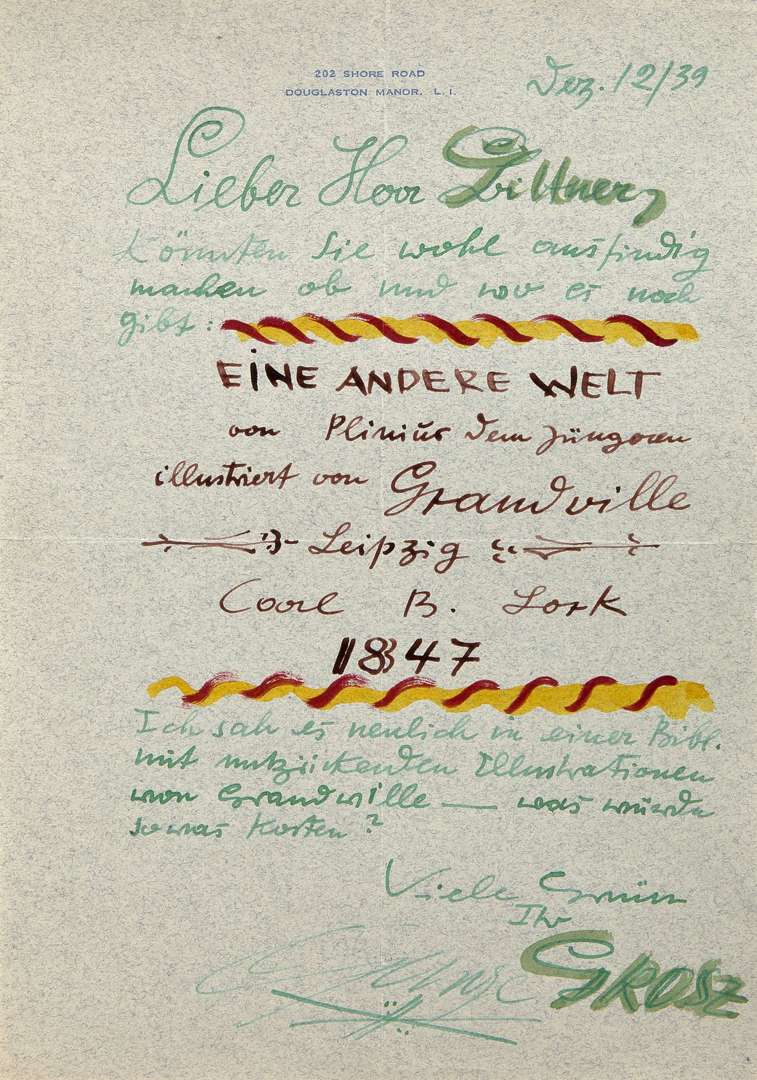 202 SHORE ROAD
DOUGLASTON MANOR, L. I.
Dez. 12/39
Lieber Herr Bittner,
könnten Sie wohl ausfindig
machen ob und wo es noch
gibt:
EINE ANDERE WELT
von Plinius dem jüngeren
illustriert von Grandville
Leipzig
Carl B. Lork
1847
Ich sah es neulich in einer Bibl.
mit entzückenden Illustrationen
von Grandville — was würde
sowas kosten?
Viele Grüsse
Ihr
George GROSZ